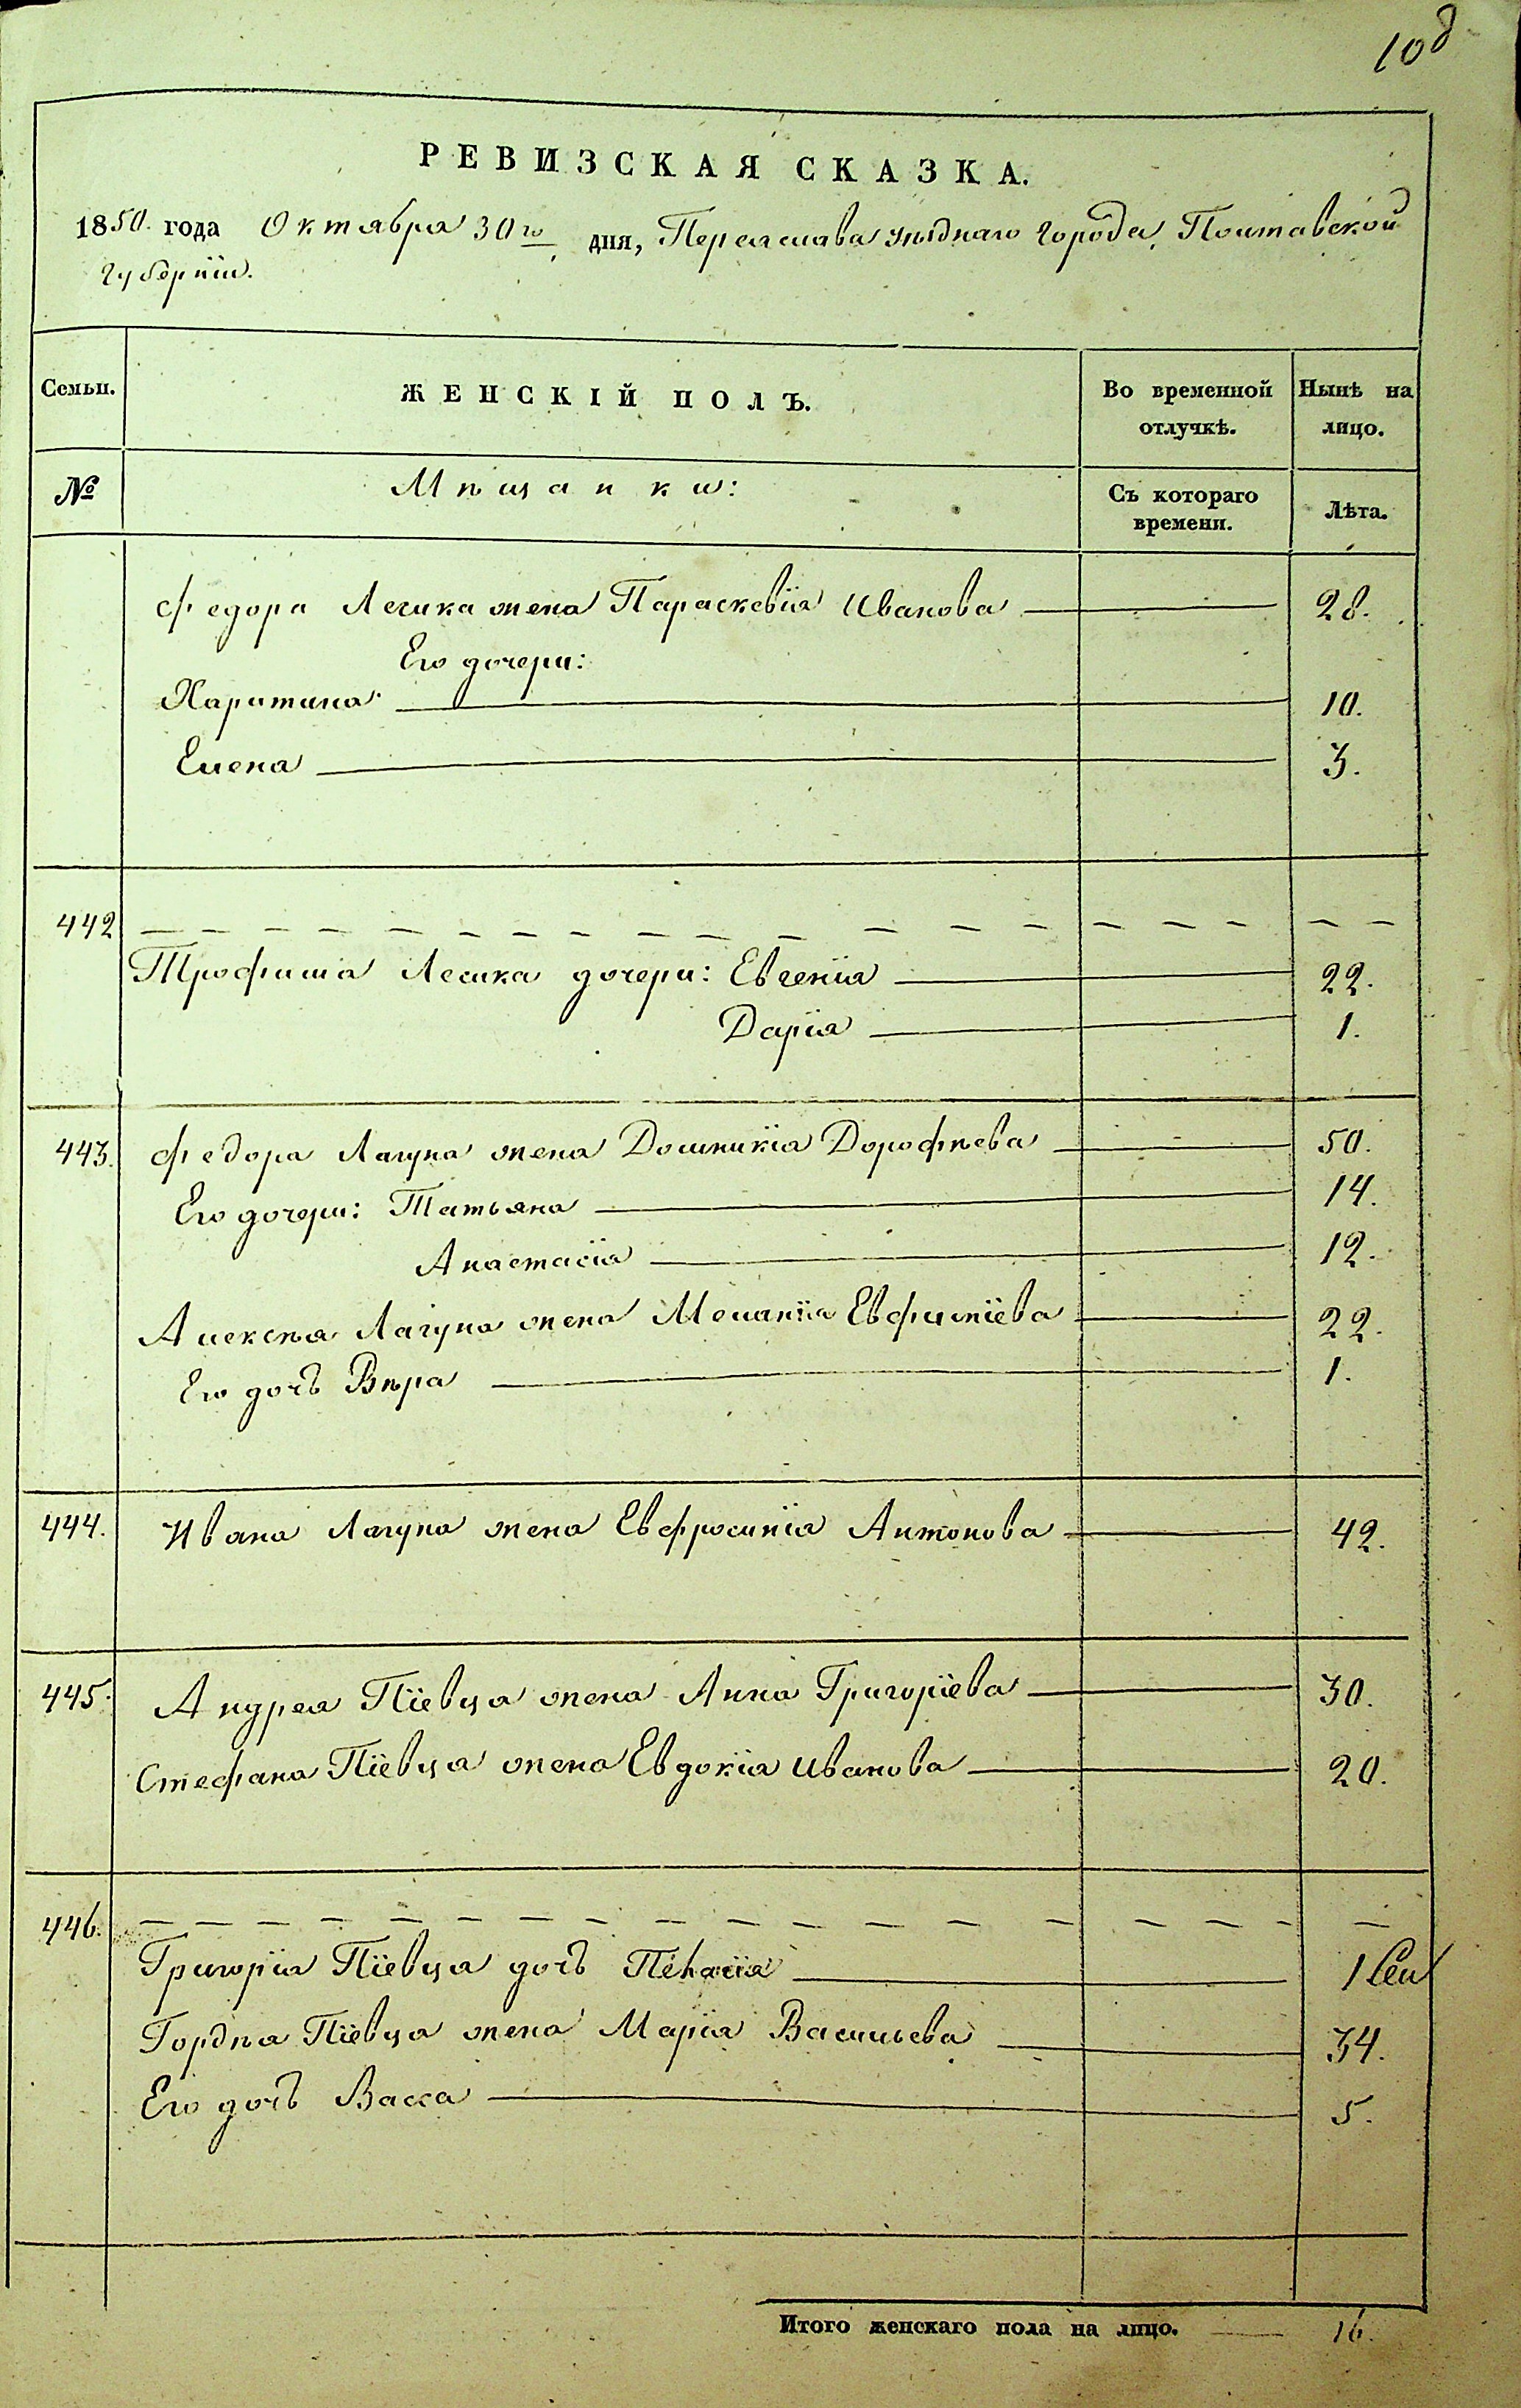 108
РЕВИЗСКАЯ СКАЗКА.
1850. года Октября 30го дня, Переяслава уѣзднаго города, Полтавской
губерніи.
Семьи. ЖЕНСКІЙ ПОЛЪ. Во временной отлучкѣ. Нынѣ на лицо.
№ Мѣщанки: Съ котораго времени. Лѣта.
Федора Лесика жена Параскевія Иванова 28.
Его дочери:
Харитина 10.
Елена 3.
442
Трофима Лесика дочери: Евгенія 22.
Дарія 1.
443. Федора Лагуна жена Домникія Дорофѣева 50.
Его дочери: Татьяна 14.
Анастасія 12.
Алексѣя Лагуна жена Меланія Евфиміева 22.
Его дочь Вѣра 1.
444. Ивана Лагуна жена Евфросинія Антонова 42.
445. Андрея Піевца жена Анна Григоріева 30.
Стефана Піевца жена Евдокія Иванова 20.
446.
Григорія Піевца дочь 1
Гордѣя Піевца жена Марія Васильева 34.
Его дочь Васса 5.
Итого женскаго пола на лицо. 16.